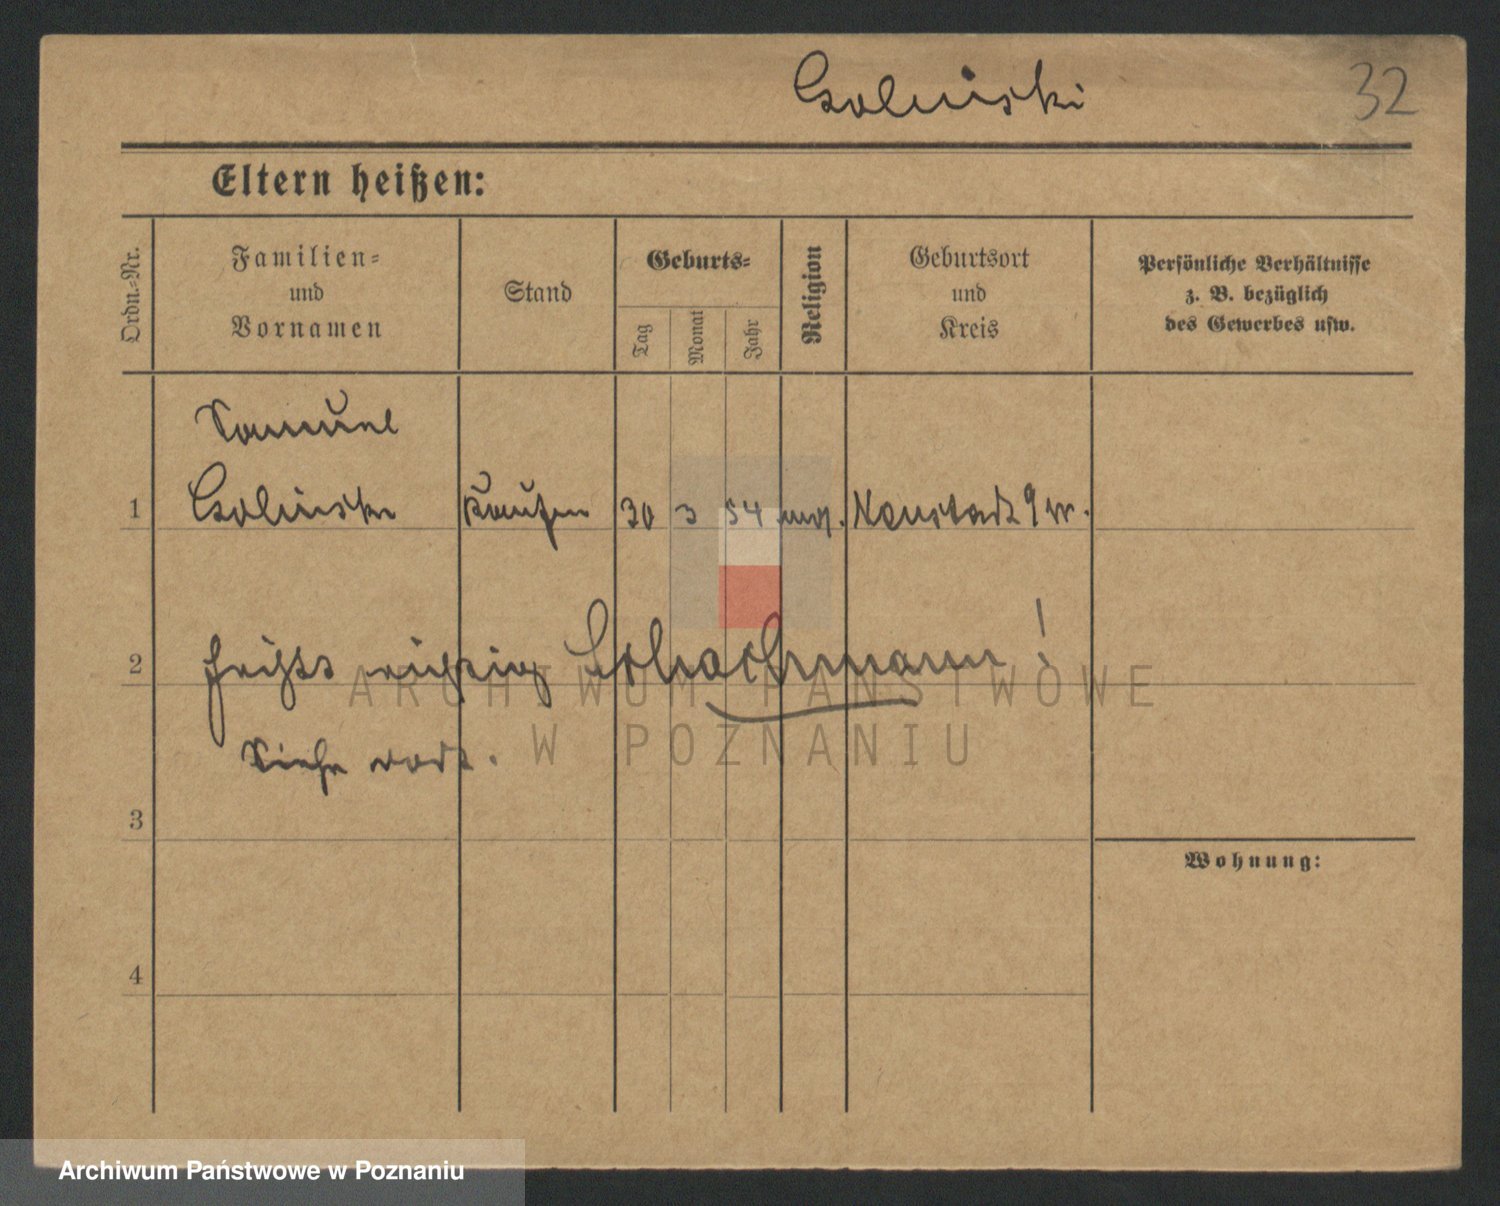 Golinski
32
Eltern heißen:
Ordn.-Nr.
Familien-
und
Vornamen
Stand
Geburts-
Tag
Monat
Jahr
Religion
Geburtsort
und
Kreis
Persönliche Verhältnisse
z. B. bezüglich
des Gewerbes usw.
Samuel
1 Golinski 30 3 54 Neustadt
2 heißt richtig Schachmann!
Siehe dort.
3
Wohnung:
4
ARCHIWUM PAŃSTWOWE
W POZNANIU
Archiwum Państwowe w Poznaniu